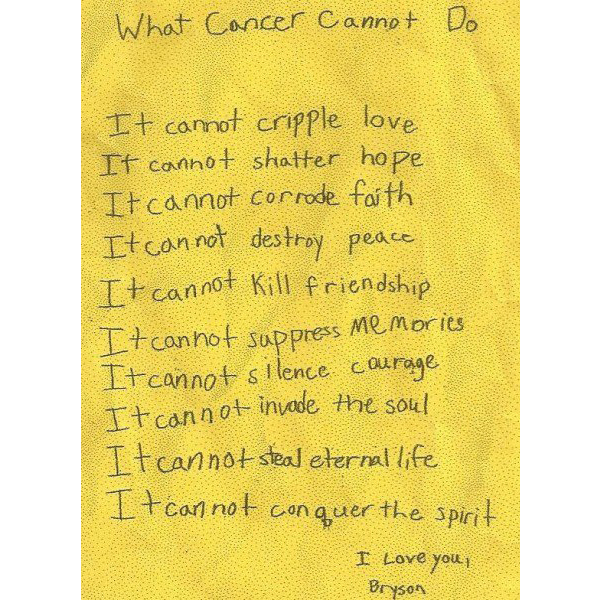 What Cancer Cannot Do
It cannot cripple love
It cannot shatter hope
It cannot corrode faith
It cannot destroy peace
It cannot kill friendship
It cannot suppress memories
It cannot silence courage
It cannot invade the soul
It cannot steal eternal life
It cannot conquer the spirit
I Love you,
Bryson